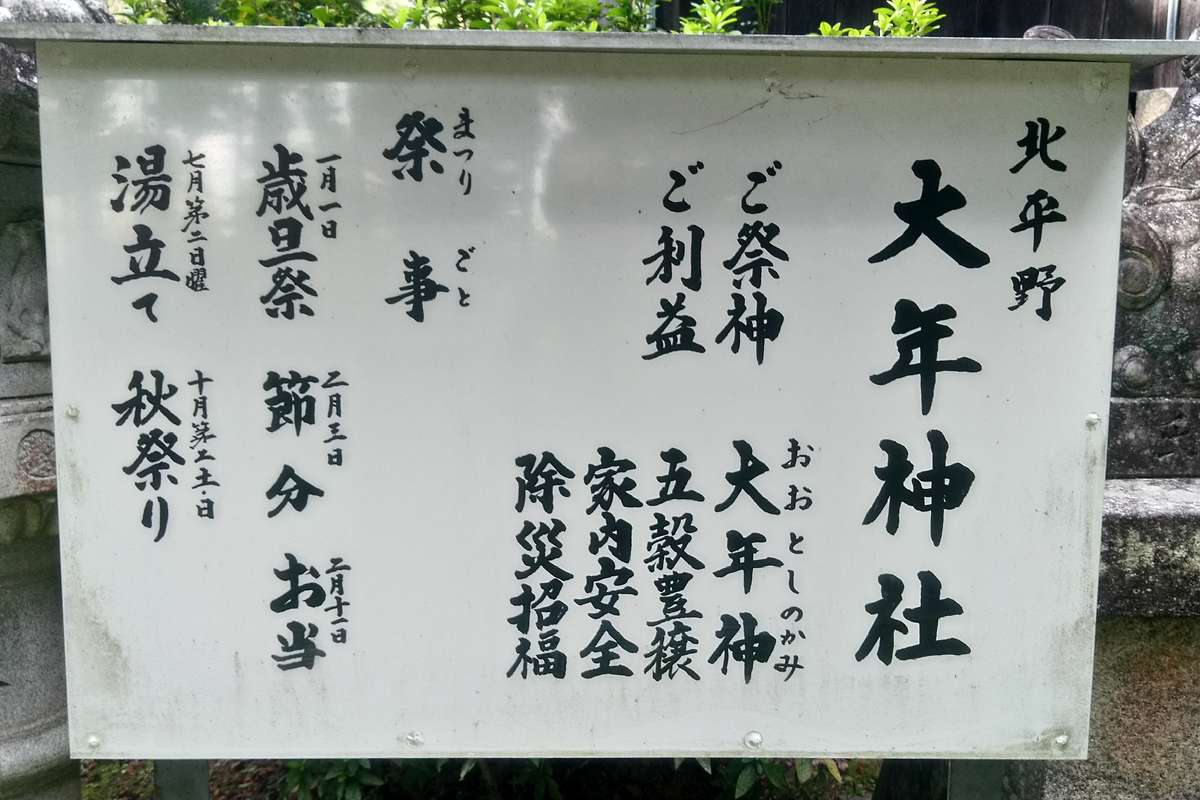 北平野
大年神社
ご祭神 大年神
おおとしのかみ
ご利益 五穀豊穣
家内安全
除災招福
祭事
まつりごと
一月一日 二月三日 二月十一日
歳旦祭 節分 お当
七月第二日曜 十月第二土・日
湯立て 秋祭り